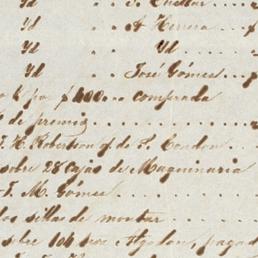 Yd " " F. Cuellar
Yd " " A Herrera
Yd " " Yd
Yd " " José Gómes
$400 comprada
de premio
J. H. Robertson of de F. Condon
sobre 28 cajas de Maquinaria
J. M. Gómes
sillas de montar
sobre 104 Algodon, pagad